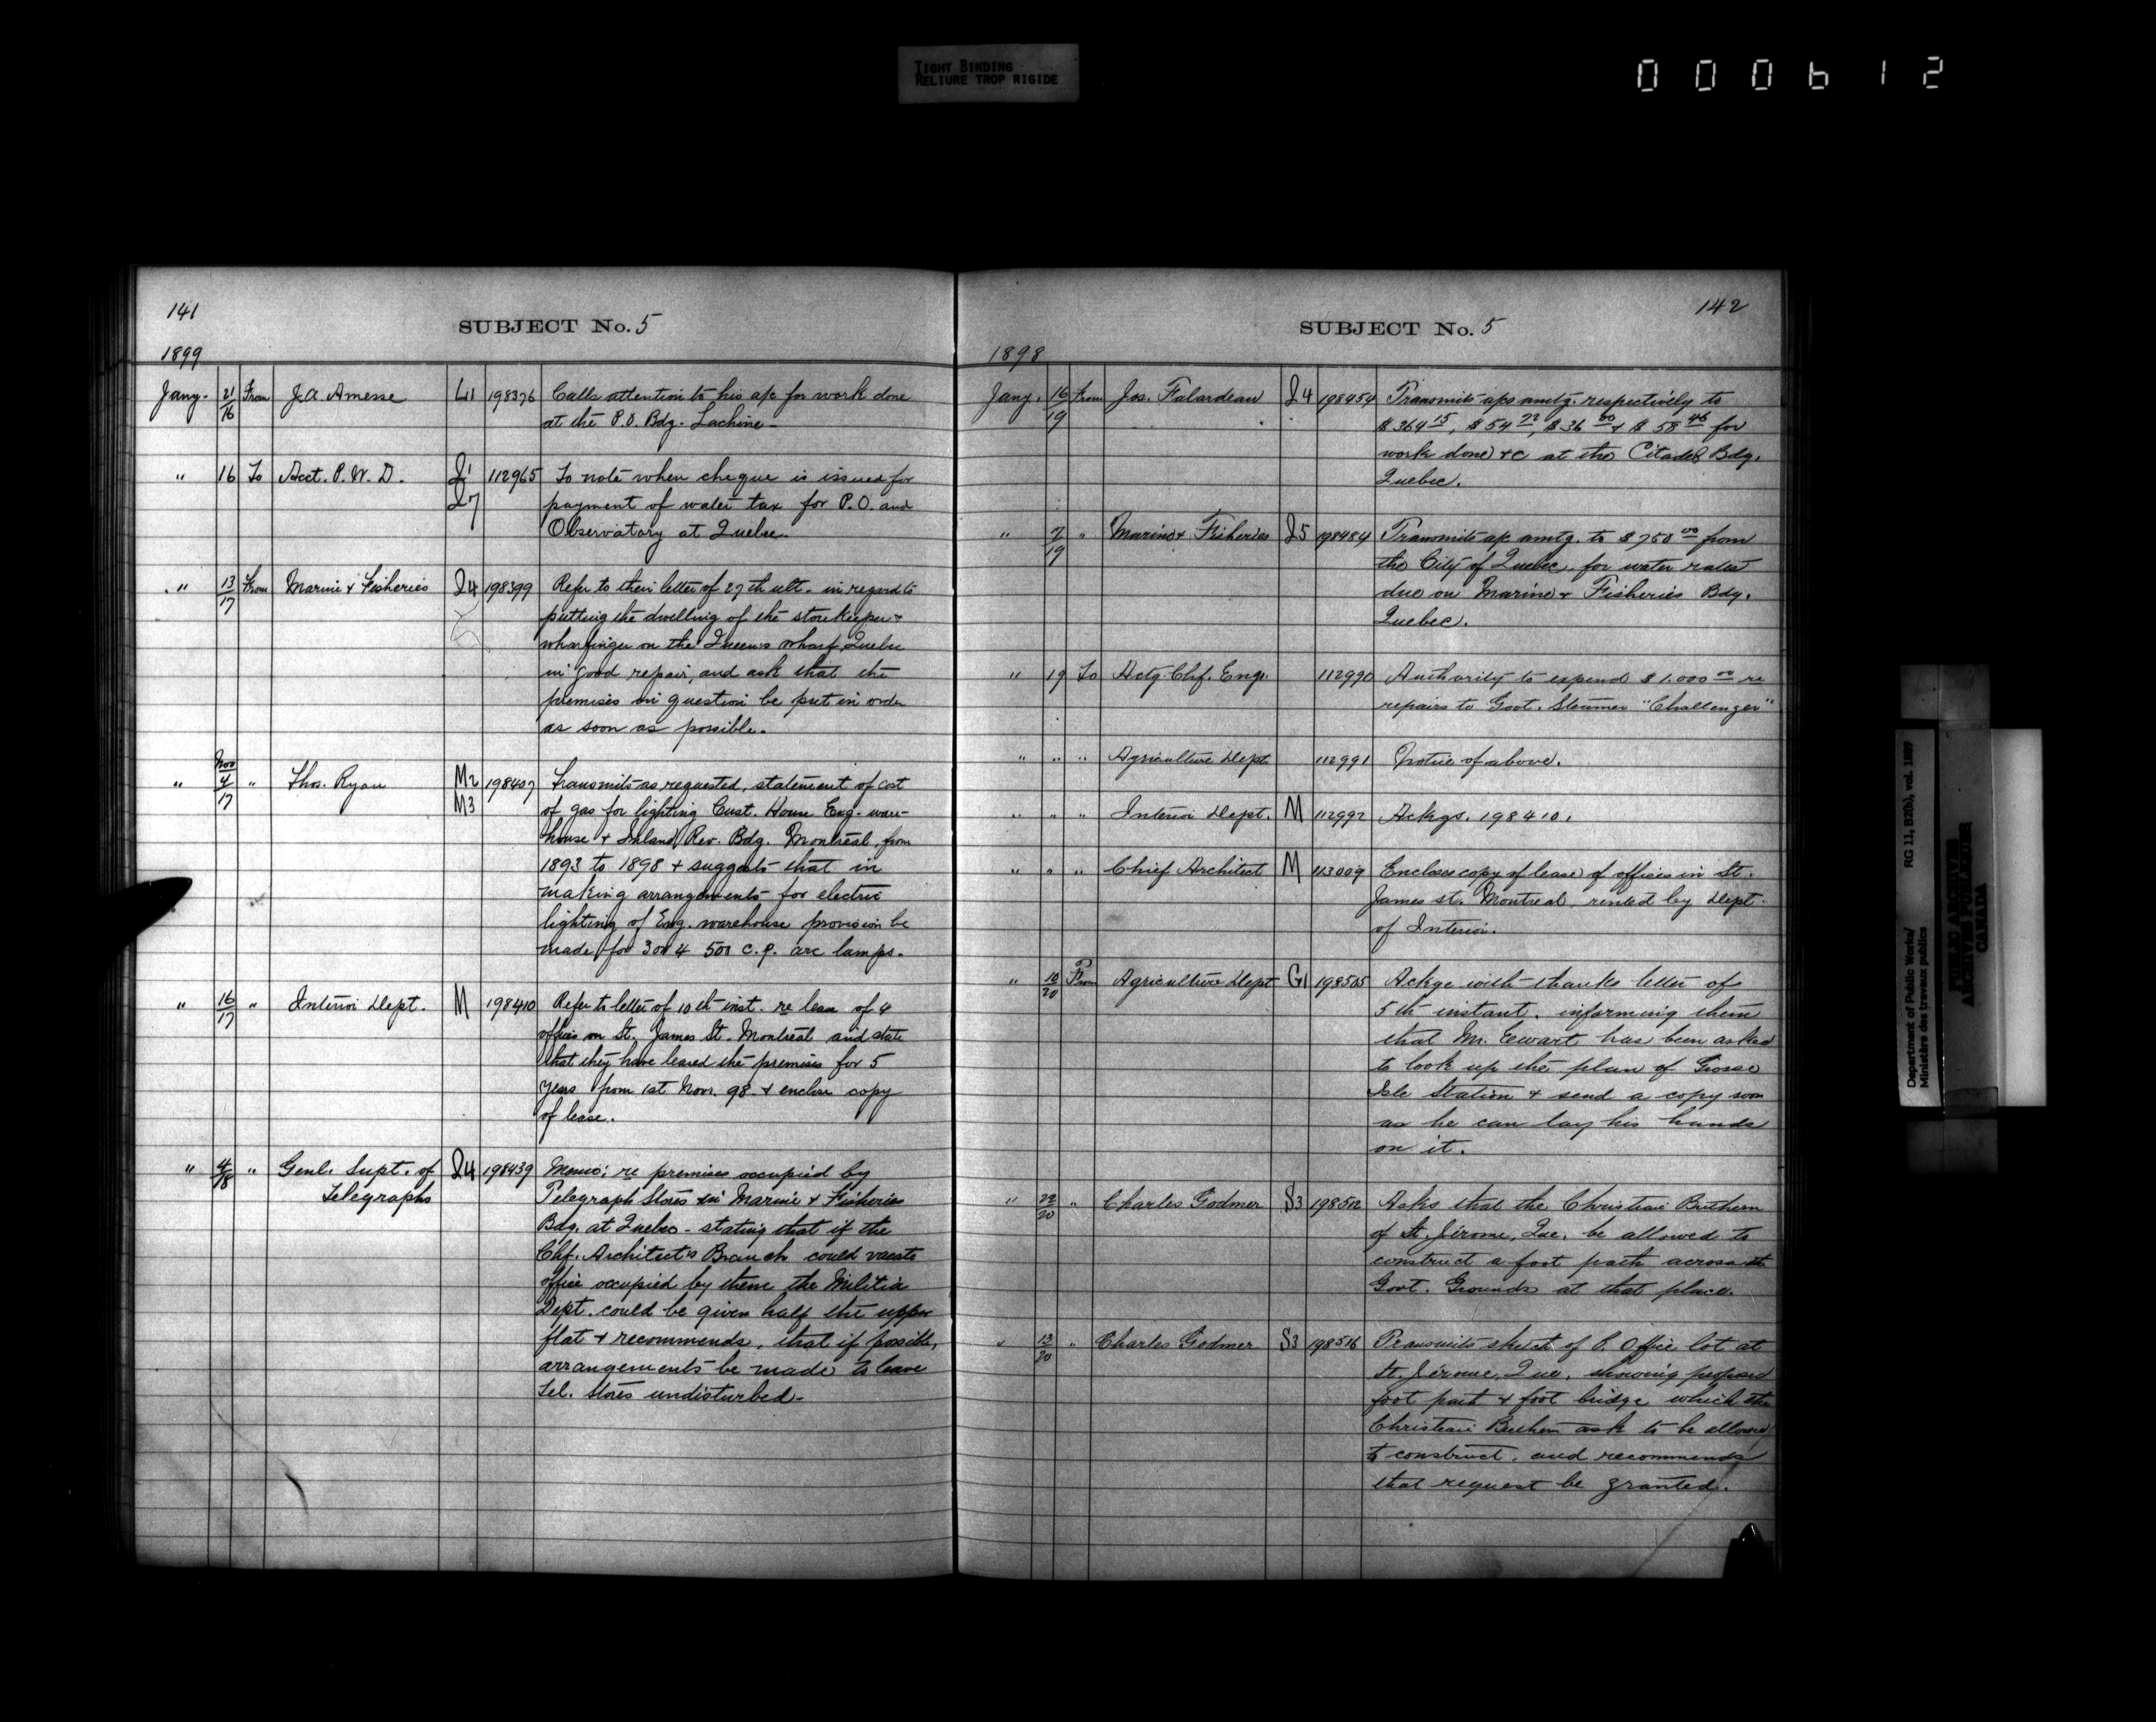 TIGHT BINDING
RELIURE TROP RIGIDE
000612
141
SUBJECT No. 5
1899
Jany. 21/16 From J.A. Amesse L1 198376 Calls attention to his a/c for work done
at the P.O. Bdg. Lachine.
" 16 To Acct. P.W.D. Q1 112965 To note when cheque is issued for
Q7 payment of water tax for P.O. and
Observatory at Quebec.
" 13/17 From Marine & Fisheries Q4 198399 Refer to their letter of 27th ult. in regard to
putting the dwelling of the storekeeper &
wharfinger on the Queens Wharf, Quebec
in good repair, and ask that the
premises in question be put in order
as soon as possible.
" Nov 4/17 " Thos. Ryan M2 198407 Transmits as requested, statement of cost
M3 of gas for lighting Cust. House Exg. ware-
house & Inland Rev. Bdg. Montreal, from
1893 to 1898 & suggests that in
making arrangements for electric
lighting of Exg. warehouse provision be
made for 3 or 4 500 c.p. arc lamps.
" 16/17 " Interior Dept. M 198410 Refer to letter of 10th inst. re lease of 4
offices on St. James St. Montreal and state
that they have leased the premises for 5
years from 1st Novr. 98 & enclose copy
of lease.
" 4/18 " Genl. Supt. of Q4 198439 Memo: re premises occupied by
Telegraphs Telegraph Stores in Marine & Fisheries
Bdg. at Quebec - stating that if the
Chf. Architect's Branch could vacate
office occupied by them the Militia
Dept. could be given half the upper
flat & recommends, that if possible,
arrangements be made to leave
Tel. Stores undisturbed.
142
SUBJECT No. 5
1898
Jany. 16/19 From Jos. Falardeau Q4 198454 Transmits a/cs amtg. respectively to
$364 15, $54 22, $36 00 & $58 46 for
work done &c at the Citadel Bdg.
Quebec.
" 7/19 " Marine & Fisheries Q5 198484 Transmits a/c amtg. to $750 00 from
the City of Quebec, for water rates
due on Marine & Fisheries Bdg.
Quebec.
" 19 To Actg. Chf. Eng. 112990 Authority to expend $1.000 00 re
repairs to Govt. Steamer "Challenger"
" " " Agriculture Dept. 112991 Notice of above.
" " " Interior Dept. M 112992 Ackgs. 198410.
" " " Chief Architect M 113009 Encloses copy of lease of offices in St.
James st. Montreal, rented by Dept.
of Interior.
" 10/20 From Agriculture Dept G1 198505 Ackge with thanks letter of
5th instant, informing them
that Mr. Ewart has been asked
to look up the plan of Grosse
Isle Station & send a copy soon
as he can lay his hands
on it.
" 22/20 " Charles Godmer S3 198512 Asks that the Christian Brethern
of St. Jérome, Que. be allowed to
construct a foot path across the
Govt. Grounds at that place.
" 13/20 " Charles Godmer S3 198516 Transmits sketch of P. Office lot at
St. Jérome, Que. showing proposed
foot path & foot bridge which the
Christian Brethern ask to be allowed
to construct, and recommends
that request be granted.
Department of Public Works/ RG 11, B2(b), vol. 1889
Ministère des travaux publics
PUBLIC ARCHIVES
ARCHIVES PUBLIQUES
CANADA